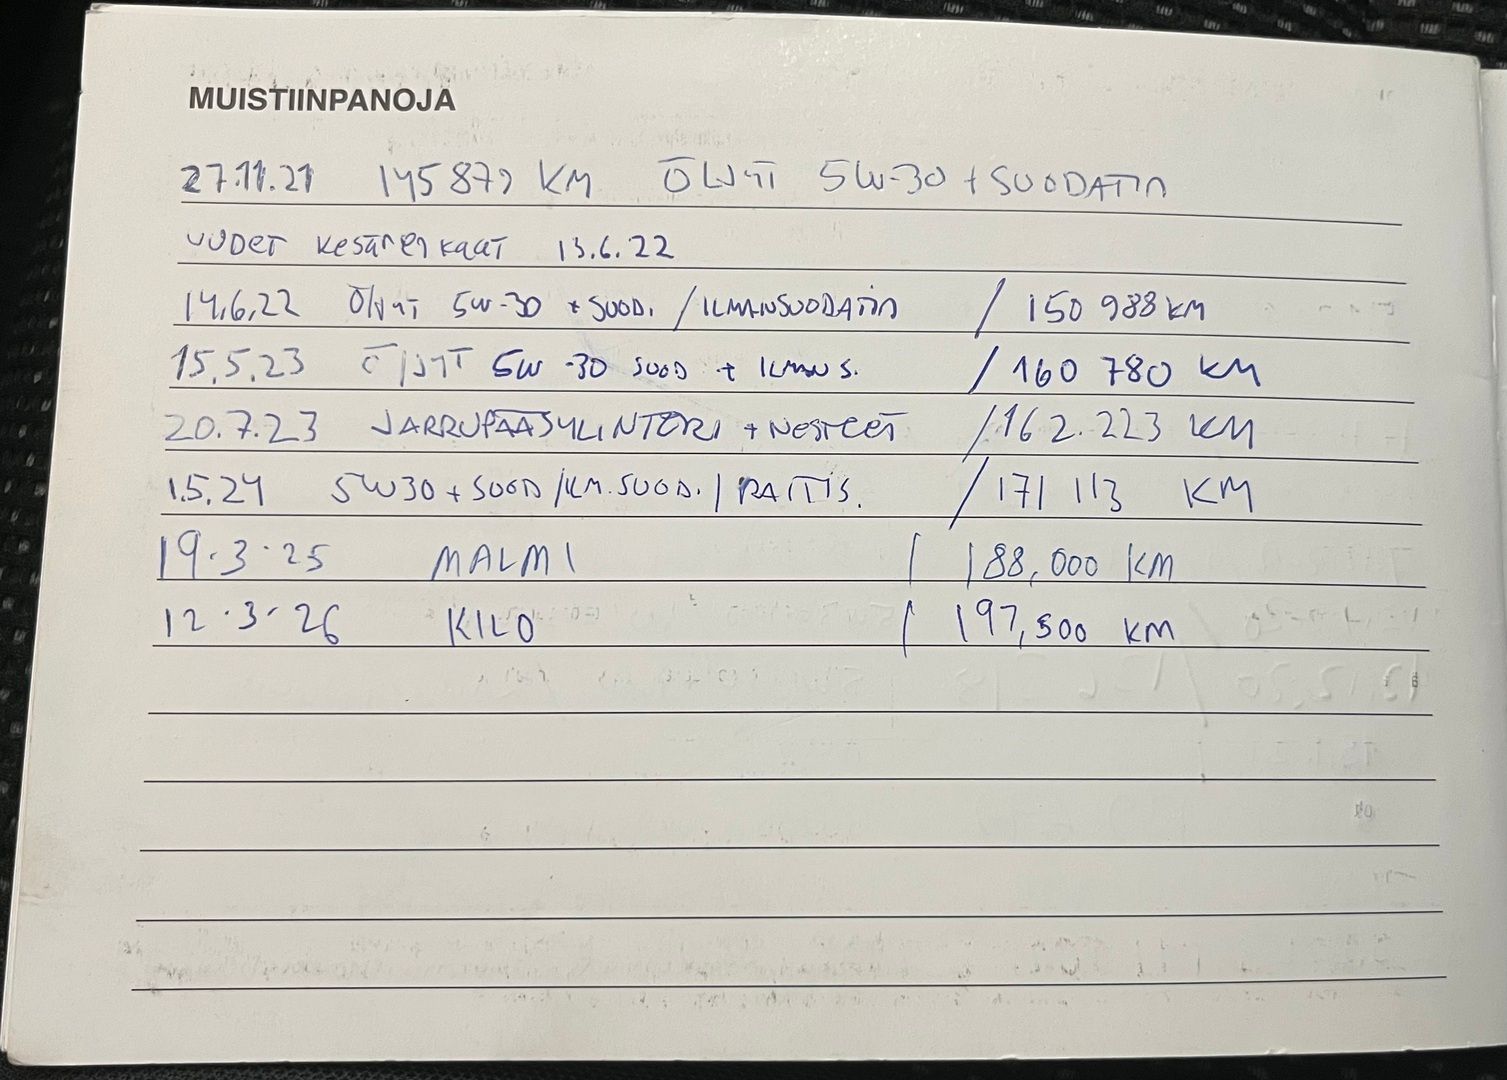 MUISTIINPANOJA
27.11.21 145 879 KM ÖLJYT 5W-30 + SUODATIN
UUDET KESÄRENKAAT 13.6.22
14.6.22 ÖLJYT 5W-30 + SUOD. / ILMANSUODATIN / 150 988 KM
15.5.23 ÖLJYT 5W-30 SUOD + ILMAN S. / 160 780 KM
20.7.23 JARRUPÄÄSYLINTERI + NESTEET / 162.223 KM
1.5.24 5W30 + SUOD / ILM. SUOD. / RAITIS. / 171 113 KM
19.3.25 MALMI / 188,000 KM
12.3.26 KILO / 197,500 KM